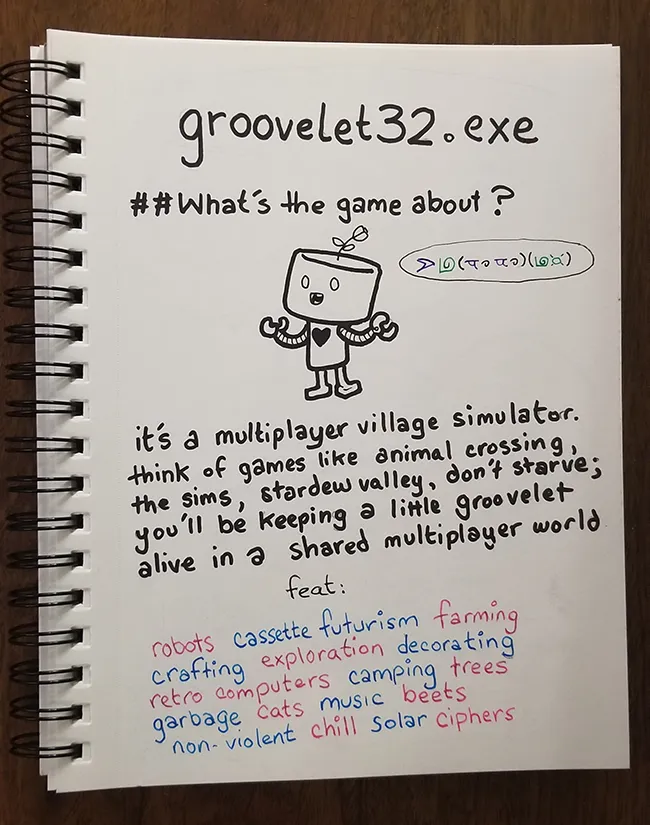 groovelet32.exe
##What's the game about?
it's a multiplayer village simulator.
think of games like animal crossing,
the sims, stardew valley, don't starve;
you'll be keeping a little groovelet
alive in a shared multiplayer world
feat:
robots cassette futurism farming
crafting exploration decorating
retro computers camping trees
garbage cats music beets
non-violent chill solar ciphers